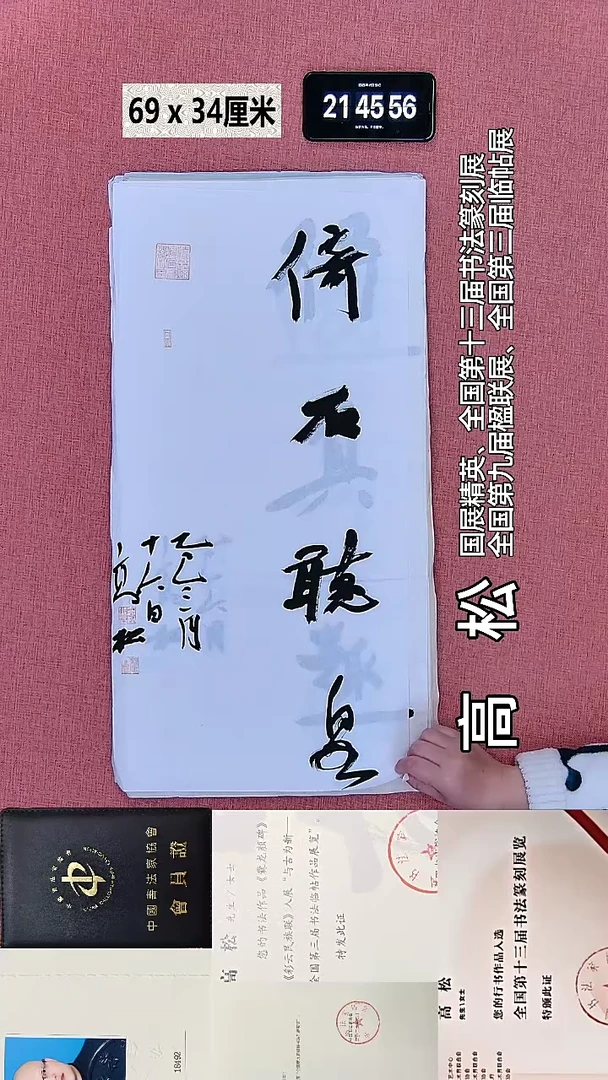 69 x 34厘米
21 45 56
倚石聽泉
乙巳三月
十八日
高松
国展精英、全国第十三届书法篆刻展
全国第九届楹联展、全国第三届临帖展
高 松
中國書法家協會
會員證
18492
高 松 先生/女士
您的书法作品《爨龙颜碑》
《彩云民族融》入展“与古为新—
全国第三届书法临帖作品展览”。
特发此证
高 松 先生\女士
您的行书作品入选
全国第十三届书法篆刻展览
特颁此证